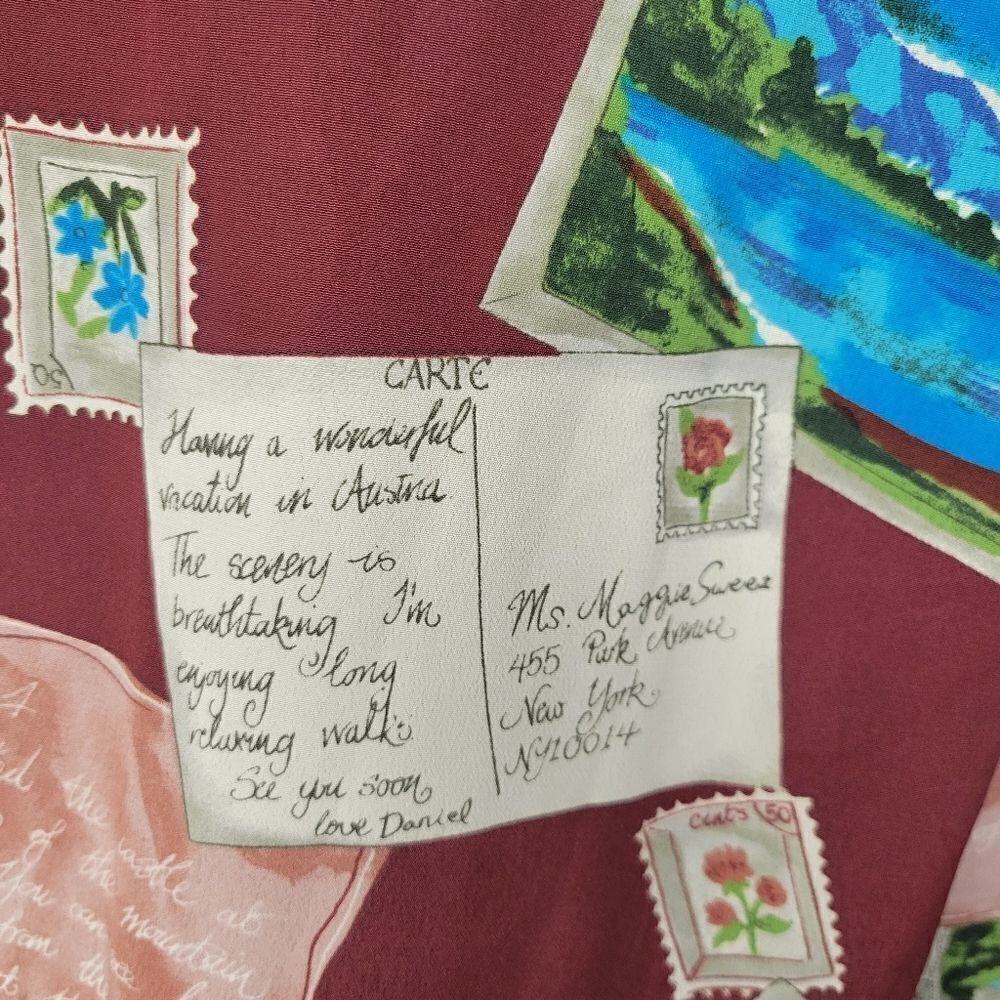 50
CARTE
Having a wonderful
vacation in Austria
The scenery is
breathtaking I'm
enjoying long
relaxing walks
See you soon
love Daniel
Ms. Maggie Sweet
455 Park Avenue
New York
NY10014
cents 50
the castle at
of the
You can mountain
from the